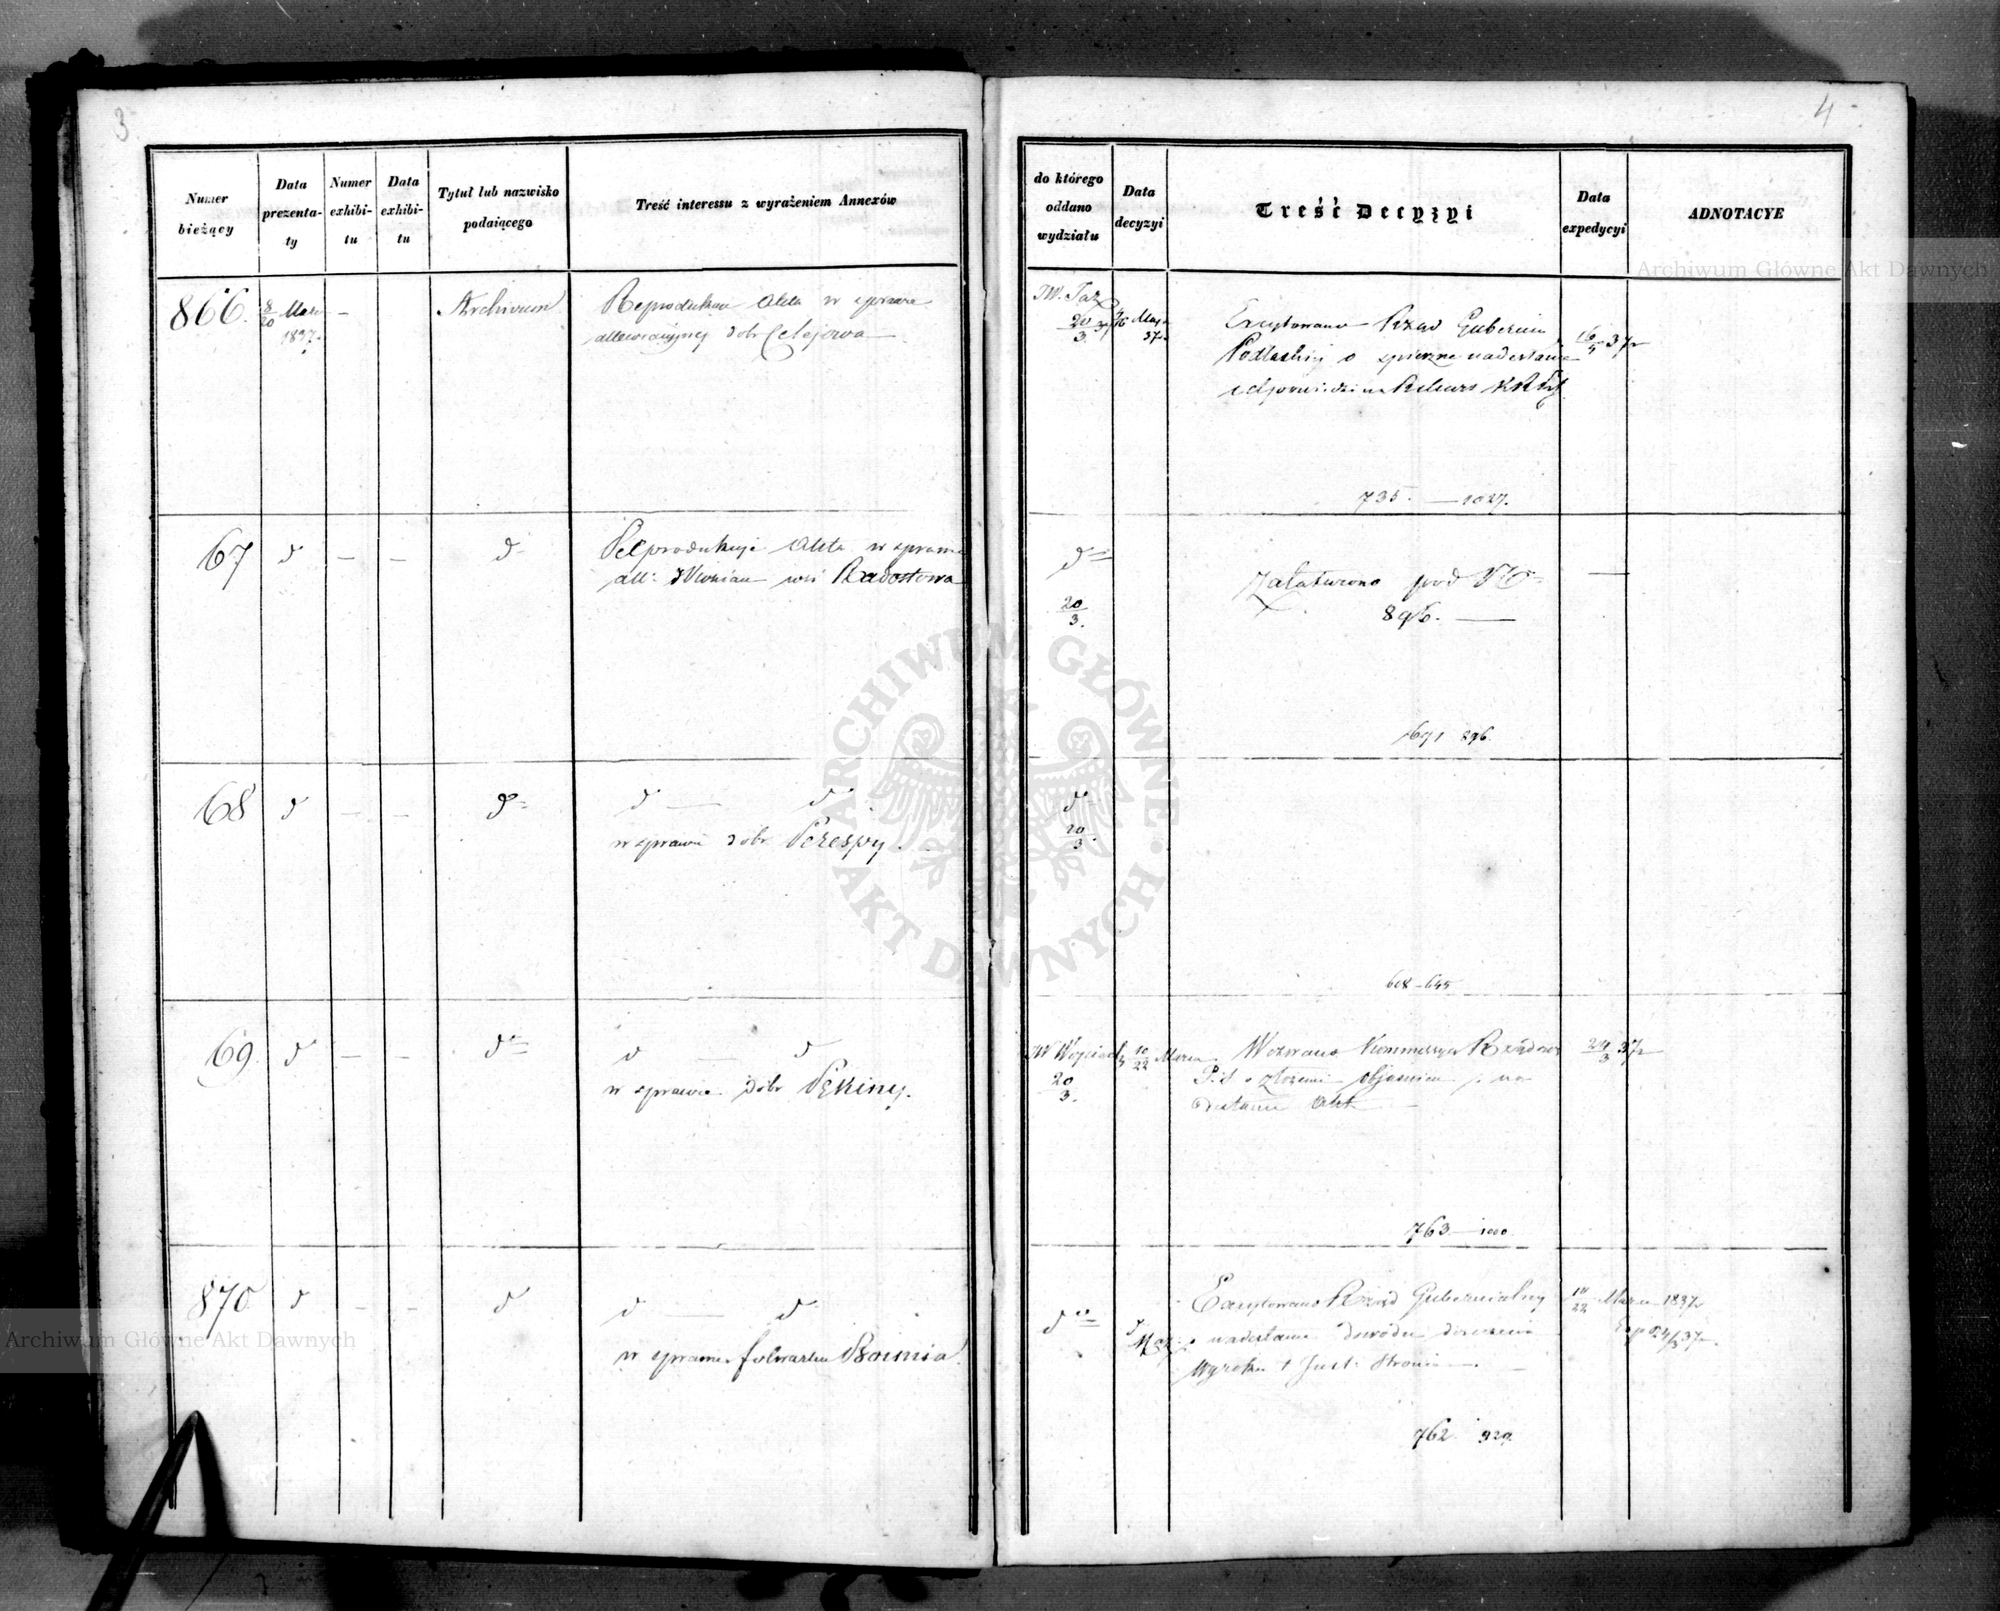 3
Numer
bieżący
Data
prezenta-
ty
Numer
exhibi-
tu
Data
exhibi-
tu
Tytuł lub nazwisko
podającego
Treść interessu z wyrażeniem Annexów
866.
8/20 Mar
1837.
—
Archivum
Reprodukuie Akta w sprawie
allewiacyjnej dobr Celejowa
67
d
—
—
d
Reprodukuje Akta w sprawie
all: wsi Radostowa
68
d
—
—
d
d — d
w sprawie dobr Perespy.
69.
d
—
—
d
d — d
w sprawie dobr Pękiny.
870
d
—
—
d
d — d
w sprawie folwarku
4
do którego
oddano
wydziału
Data
decyzyi
Treść Decyzyi
Data
expedycyi
ADNOTACYE
JW.
20/3
Maja
37
Excytowano Rząd Gubern
Podlaski o spieszne nadesłanie
odpowiedzi na
16/5 37
735. — 1027.
d
20/3.
Załatwiono pod N
896. —
—
691 896.
d
20/3.
608 – 645
JW Wojciech
20/3.
10/22 Marca
Wezwano Kommissya Rządow
o złożenie objasnien
desłanie Akt —
24/3 37
763 — 1000.
d
d
Mar
Excytowano Rząd Gubernialny
o nadesłanie dowodu doręczenia
Wyroku
10/22 Marca 1837
Exp 24/3 37
762. 929.
Archiwum Główne Akt Dawnych
Archiwum Główne Akt Dawnych
ARCHIWUM GŁÓWNE AKT DAWNYCH